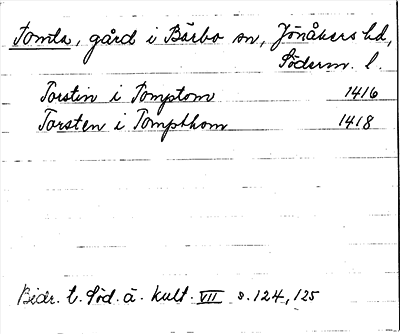 Tomta, gård i Bärbo sn, Jönåkers hd,
Söderm. l.
Torstin i Tomptom 1416
Torsten i Tompthom 1418
Bidr. t. Söd. ä. kult. VII s. 124, 125